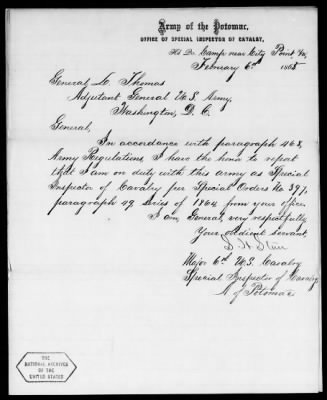 Army of the Potomac,
OFFICE OF SPECIAL INSPECTOR OF CAVALRY,
Hd Qrs Camp near City Point, Va,
February 6th 1865
General L. Thomas
Adjutant General U.S. Army,
Washington, D.C.
General,
In accordance with paragraph 468,
Army Regulations, I have the honor to report
that I am on duty with this army as Special
Inspector of Cavalry per Special Orders No 397,
paragraph 49 series of 1864 from your office.
I am, General, very respectfully
Your obedient servant,
Major 6th U.S. Cavalry
Special Inspector of Cavalry
A of Potomac
THE
NATIONAL ARCHIVES
OF THE
UNITED STATES